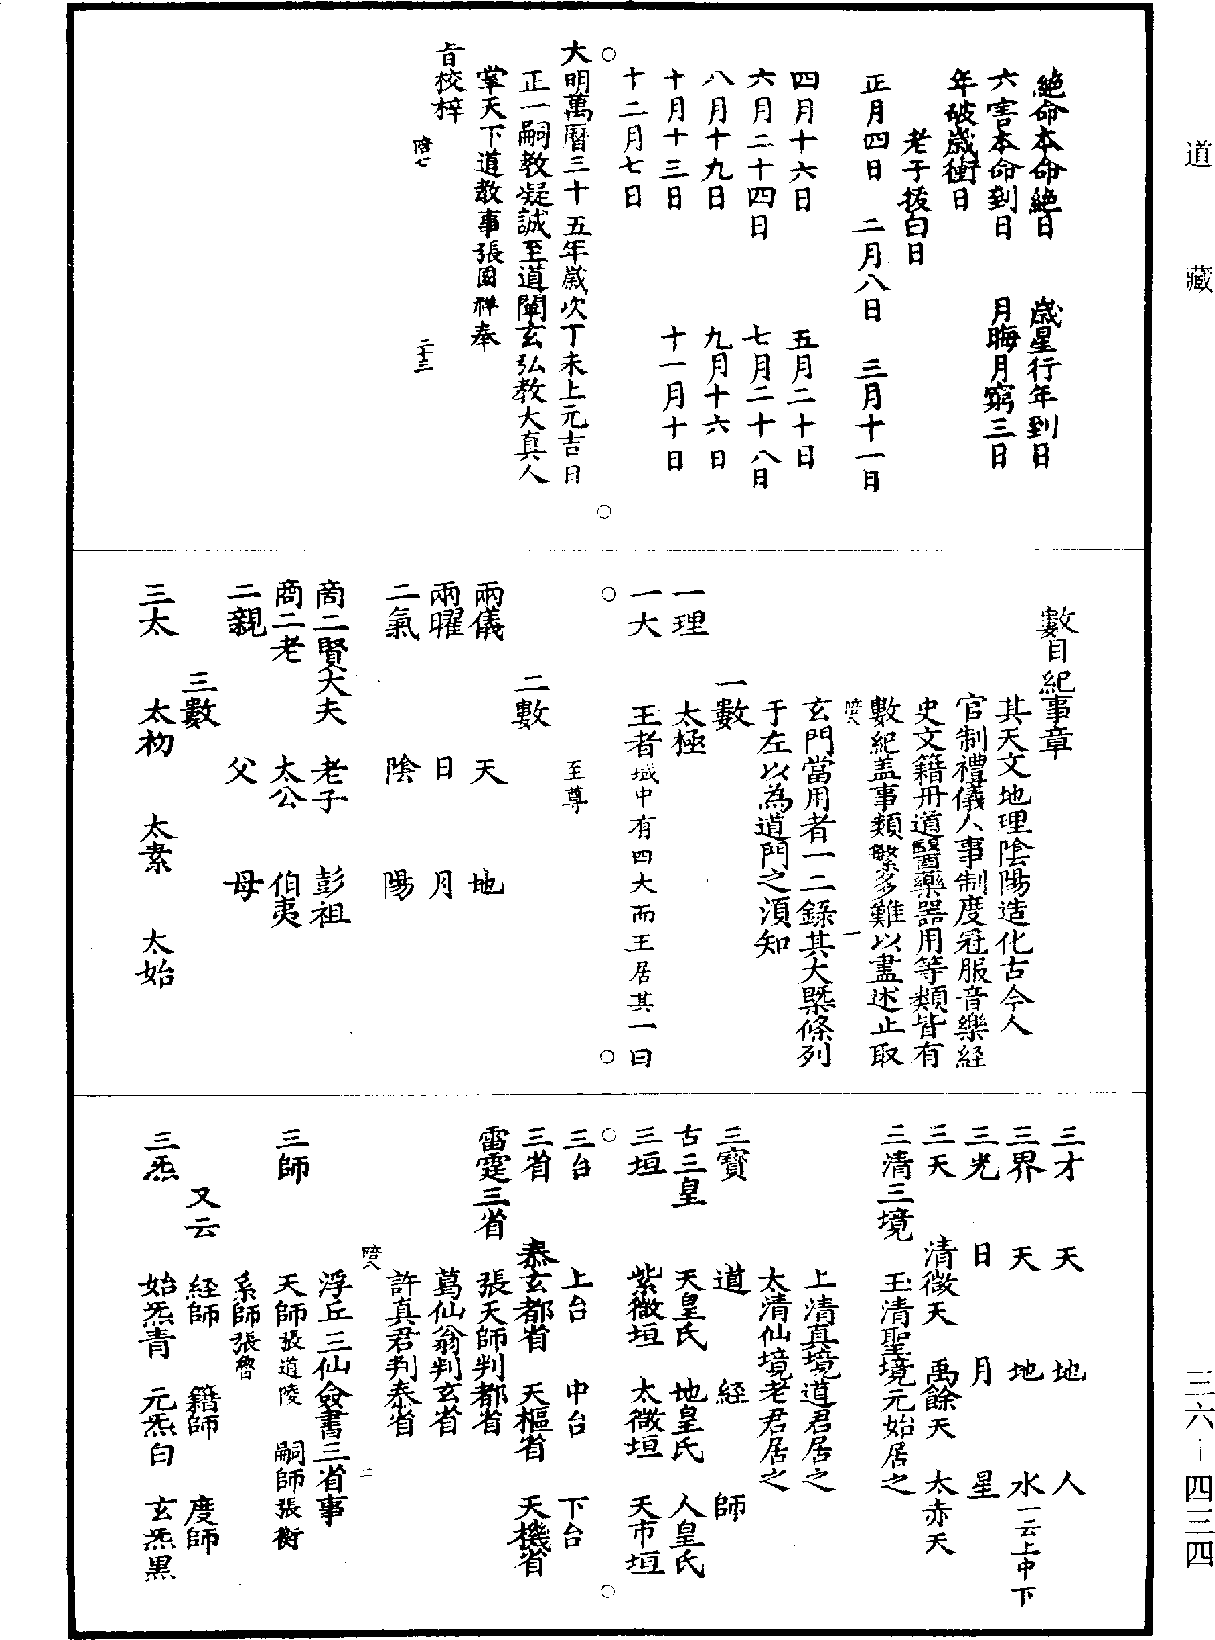 道藏
三六—四三四
絕命本命絕日　歲星行年到日
六害本命到日　月晦月窮三日
年破歲衝日
老子拔白日
正月四日　二月八日　三月十一日
四月十六日　五月二十日
六月二十四日　七月二十八日
八月十九日　九月十六日
十月十三日　十一月十日
十二月七日
大明萬曆三十五年歲次丁未上元吉日
正一嗣教凝誠至道闡玄弘教大真人
掌天下道教事張國祥奉
旨校梓
二十三
數目紀事章
其天文地理陰陽造化古今人
官制禮儀人事制度冠服音樂経
史文籍丹道醫藥器用等類皆有
數紀盖事類繁多難以盡述止取
一
玄門當用者一二錄其大槩條列
于左以為道門之須知
一數
一理　太極
一大　王者域中有四大而王居其一曰
至尊
二數
兩儀　天　地
兩曜　日　月
二氣　陰　陽
商二賢大夫　老子　彭祖
商二老　太公　伯夷
二親　父　母
三數
三太　太初　太素　太始
三才　天　地　人
三界　天　地　水一云上中下
三光　日　月　星
三天　清微天　禹餘天　太赤天
三清三境　玉清聖境元始居之
上清真境道君居之
太清仙境老君居之
三寶　道　經　師
古三皇　天皇氏　地皇氏　人皇氏
三垣　紫微垣　太微垣　天市垣
三台　上台　中台　下台
三省　泰玄都省　天樞省　天機省
雷霆三省　張天師判都省
葛仙翁判玄省
許真君判泰省
二
浮丘三仙僉書三省事
三師　天師張道陵　嗣師張衡
系師張魯
又云　経師　籍師　度師
三炁　始炁青　元炁白　玄炁黑